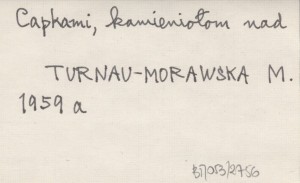 Capkami, kamieniołom nad
TURNAU-MORAWSKA M.
1959 a